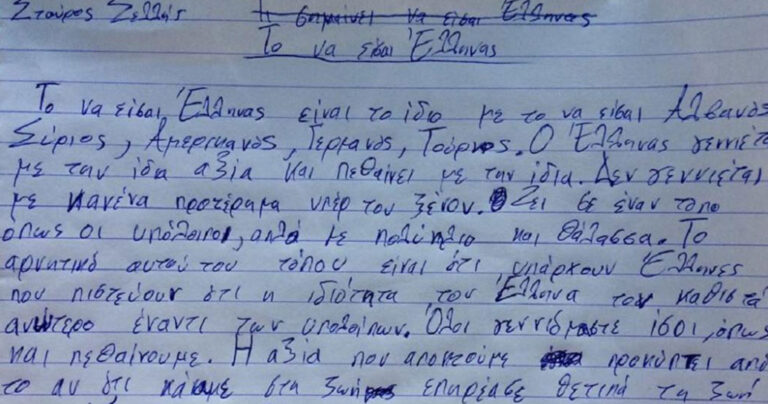 Σταύρος Ζελλής
Τι σημαίνει να είσαι Έλληνας
Το να είσαι Έλληνας
Το να είσαι Έλληνας είναι το ίδιο με το να είσαι Αλβανός
Σύριος, Αμερικανός, Γερμανός, Τούρκος. Ο Έλληνας γεννιέτα
με την ίδια αξία και πεθαίνει με την ίδια. Δεν γεννιέται
με κανένα προτέρημα υπέρ του ξένου. Ζει σε έναν τόπο
όπως οι υπόλοιποι, απλά με πολύ ήλιο και θάλασσα. Το
αρνητικό αυτού του τόπου είναι ότι, υπάρχουν Έλληνες
που πιστεύουν ότι η ιδιότητα του Έλληνα τον καθιστά
ανώτερο έναντι των υπολοίπων. Όλοι γεννιόμαστε ίσοι, όπως
και πεθαίνουμε. Η αξία που αποκτούμε προκύπτει από
το αν ότι κάναμε στη ζωή επηρέασε θετικά τη ζωή